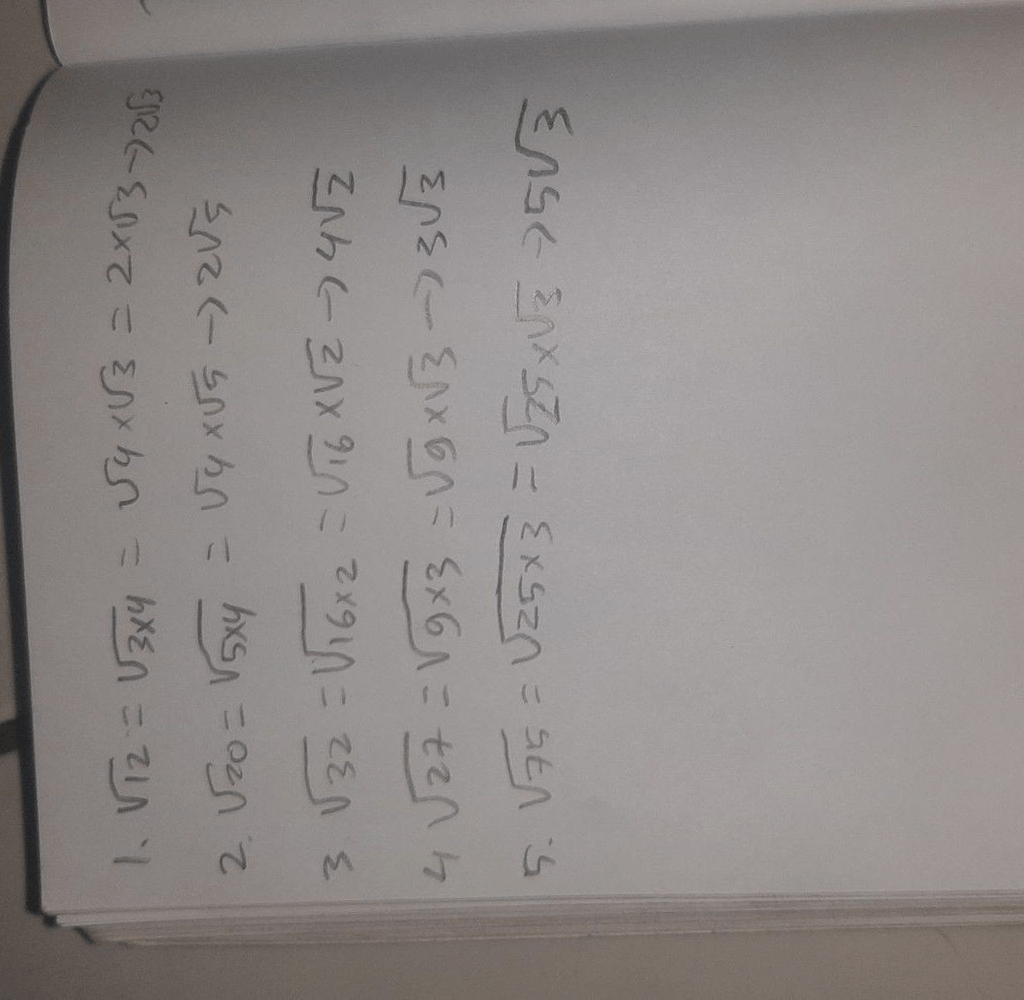 1. √12 = √3x4 = √4 x√3 = 2x√3 → 2√3
2. √20 = √5x4 = √4 x√5 → 2√5
3 √32 = √16x2 = √16 x√2 → 4√2
4 √27 = √9x3 = √9 x√3 → 3√3
5. √75 = √25x3 = √25 x√3 → 5√3